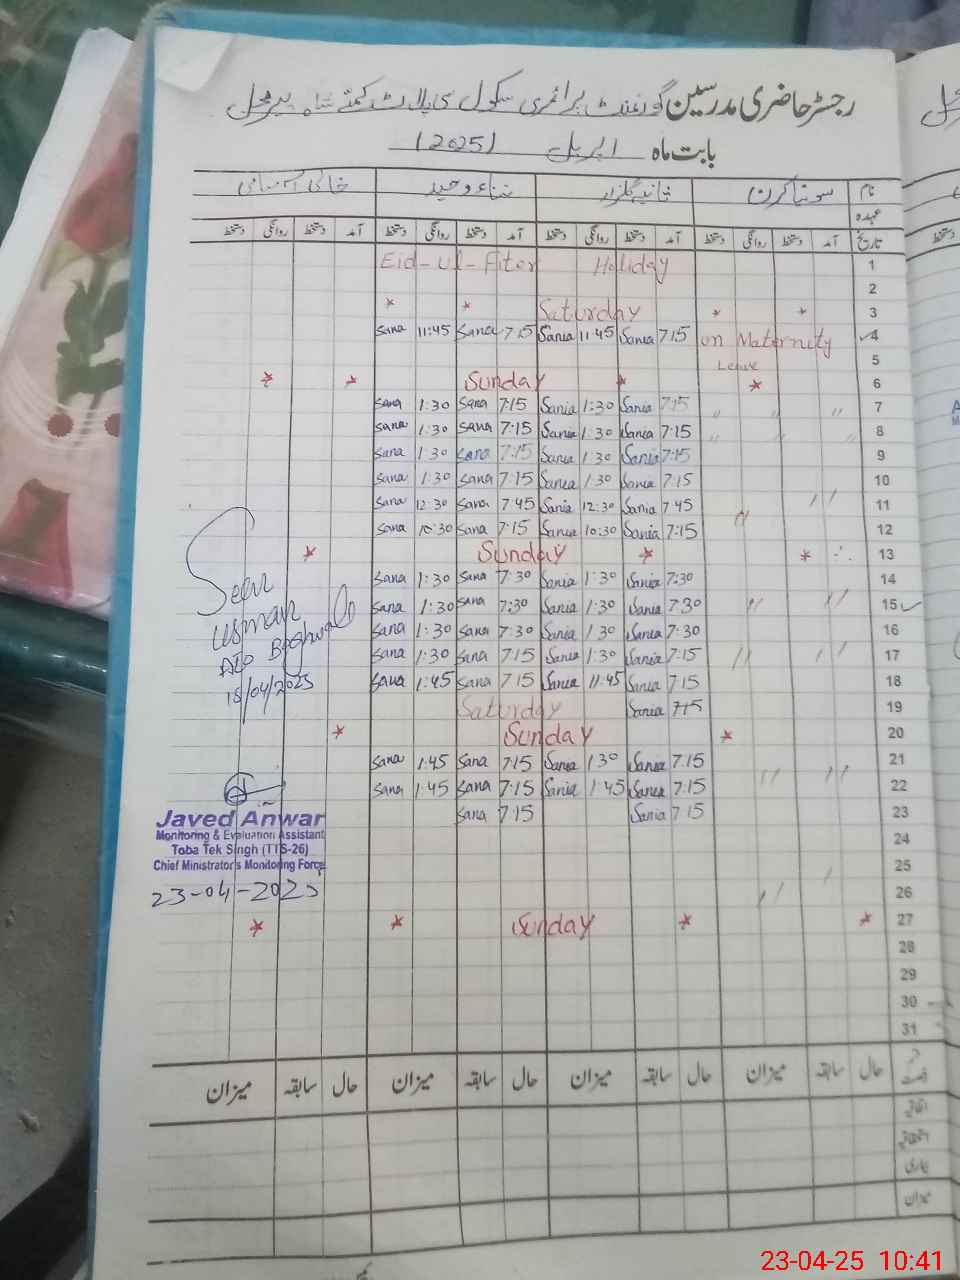 رجسٹر حاضری مدرسین گورنمنٹ پرائمری سکول
بابت ماہ اپریل (2025)
نام سونیا کرن ثانیہ گلزار ثناء وحید خالی اسامی
عہدہ
تاریخ آمد دستخط روانگی دستخط آمد دستخط روانگی دستخط آمد دستخط روانگی دستخط آمد دستخط روانگی دستخط
Eid-ul-Fiter Holiday 1
2
* * Saturday * * 3
Sana 11:45 Sana 7:15 Sania 11:45 Sania 7:15 on Maternity ✓4
Leave 5
* * Sunday * * 6
Sana 1:30 Sana 7:15 Sania 1:30 Sania 7:15 〃 〃 7
Sana 1:30 Sana 7:15 Sania 1:30 Sania 7:15 〃 〃 〃 8
Sana 1:30 Sana 7:15 Sania 1:30 Sania 7:15 9
Sana 1:30 Sana 7:15 Sania 1:30 Sania 7:15 10
Sana 12:30 Sana 7:45 Sania 12:30 Sania 7:45 〃 〃 11
Sana 10:30 Sana 7:15 Sania 10:30 Sania 7:15 12
* Sunday * * 13
Sana 1:30 Sana 7:30 Sania 1:30 Sania 7:30 14
Sana 1:30 Sana 7:30 Sania 1:30 Sania 7:30 〃 〃 15✓
Sana 1:30 Sana 7:30 Sania 1:30 Sania 7:30 16
Sana 1:30 Sana 7:15 Sania 1:30 Sania 7:15 〃 〃 17
Sana 1:45 Sana 7:15 Sania 11:45 Sania 7:15 18
Saturday Sania 7:15 19
* Sunday * 20
Sana 1:45 Sana 7:15 Sania 1:30 Sania 7:15 21
Sana 1:45 Sana 7:15 Sania 1:45 Sania 7:15 〃 〃 22
Sana 7:15 Sania 7:15 23
24
25
〃 26
* * Sunday * * 27
28
29
30
31
Seen
Usman
AEO
18/04/2025
Javed Anwar
Monitoring & Evaluation Assistant
Toba Tek Singh (TTS-26)
Chief Minister's Monitoring Force
23-04-2025
حال سابقہ میزان حال سابقہ میزان حال سابقہ میزان حال سابقہ میزان
اتفاقیہ
استحقاقیہ
بیماری
میزان
23-04-25 10:41